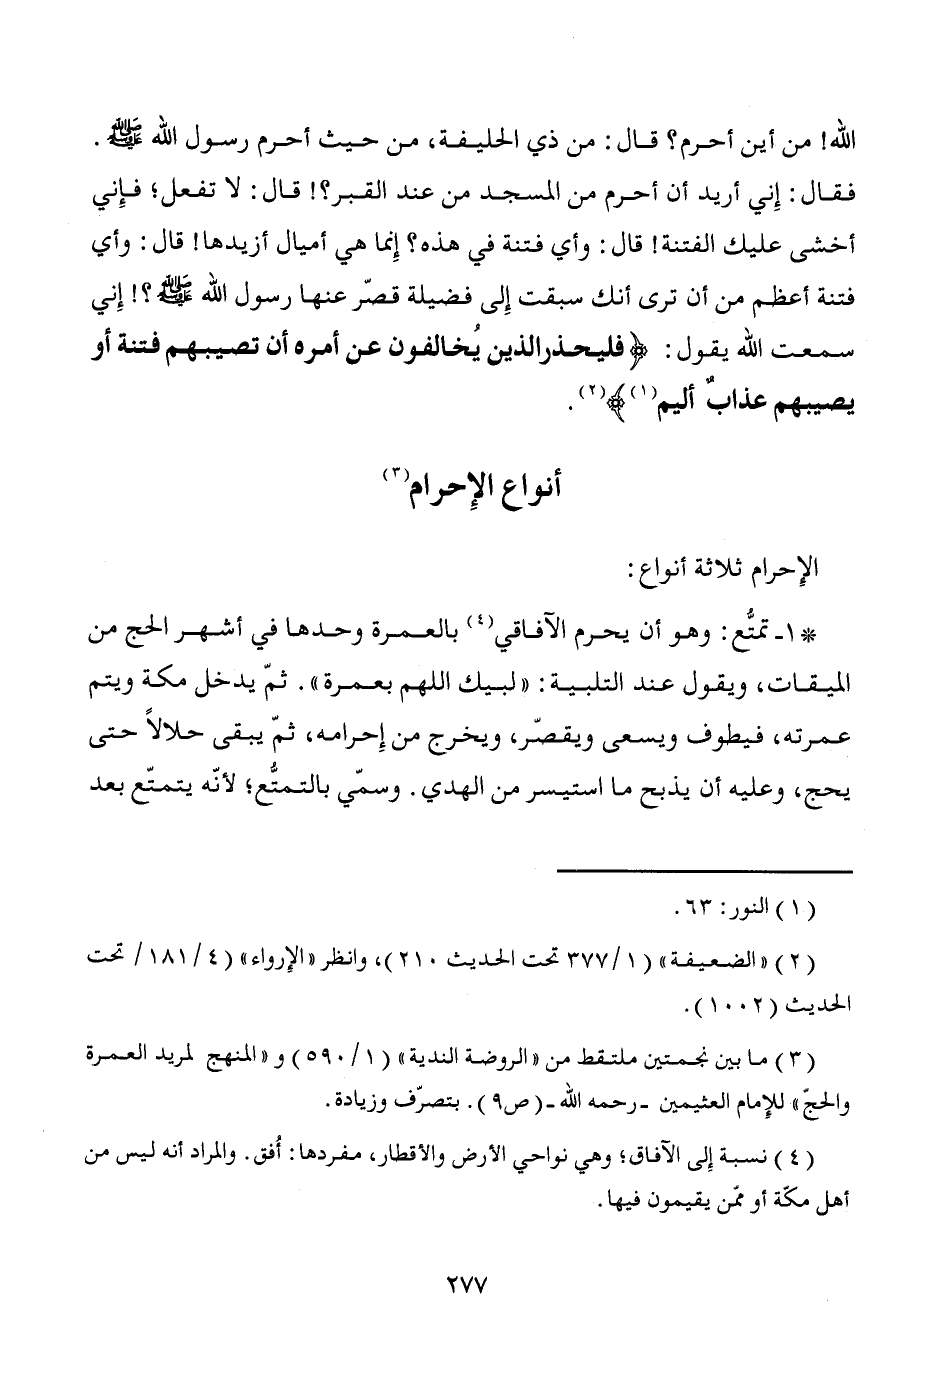 الله! من أين أحرم؟ قال: من ذي الحليفة، من حيث أحرم رسول الله ﷺ.
فقال: إني أريد أن أحرم من المسجد من عند القبر؟! قال: لا تفعل؛ فإني
أخشى عليك الفتنة! قال: وأي فتنة في هذه؟ إنما هي أميال أزيدها! قال: وأي
فتنة أعظم من أن ترى أنك سبقت إلى فضيلة قصّر عنها رسول الله ﷺ؟! إني
سمعت الله يقول: ﴿فليحذر الذين يُخالفون عن أمره أن تصيبهم فتنة أو
يصيبهم عذابٌ أليم(١)﴾(٢).
أنواع الإحرام(٣)
الإحرام ثلاثة أنواع:
*١- تمتُّع: وهو أن يحرم الآفاقي(٤) بالعمرة وحدها في أشهر الحج من
الميقات، ويقول عند التلبية: «لبيك اللهم بعمرة». ثمّ يدخل مكة ويتم
عمرته، فيطوف ويسعى ويقصّر، ويخرج من إحرامه، ثمّ يبقى حلالاً حتى
يحج، وعليه أن يذبح ما استيسر من الهدي. وسمّي بالتمتُّع؛ لأنّه يتمتّع بعد
(١) النور: ٦٣.
(٢) «الضعيفة» (١/ ٣٧٧ تحت الحديث ٢١٠)، وانظر «الإرواء» (٤/ ١٨١/ تحت
الحديث (١٠٠٢).
(٣) ما بين نجمتين ملتقط من «الروضة الندية» (١/ ٥٩٠) و «المنهج لمريد العمرة
والحجّ» للإمام العثيمين -رحمه الله- (ص٩). بتصرّف وزيادة.
(٤) نسبة إلى الآفاق؛ وهي نواحي الأرض والأقطار، مفردها: أُفق. والمراد أنه ليس من
أهل مكّة أو ممّن يقيمون فيها.
٢٧٧